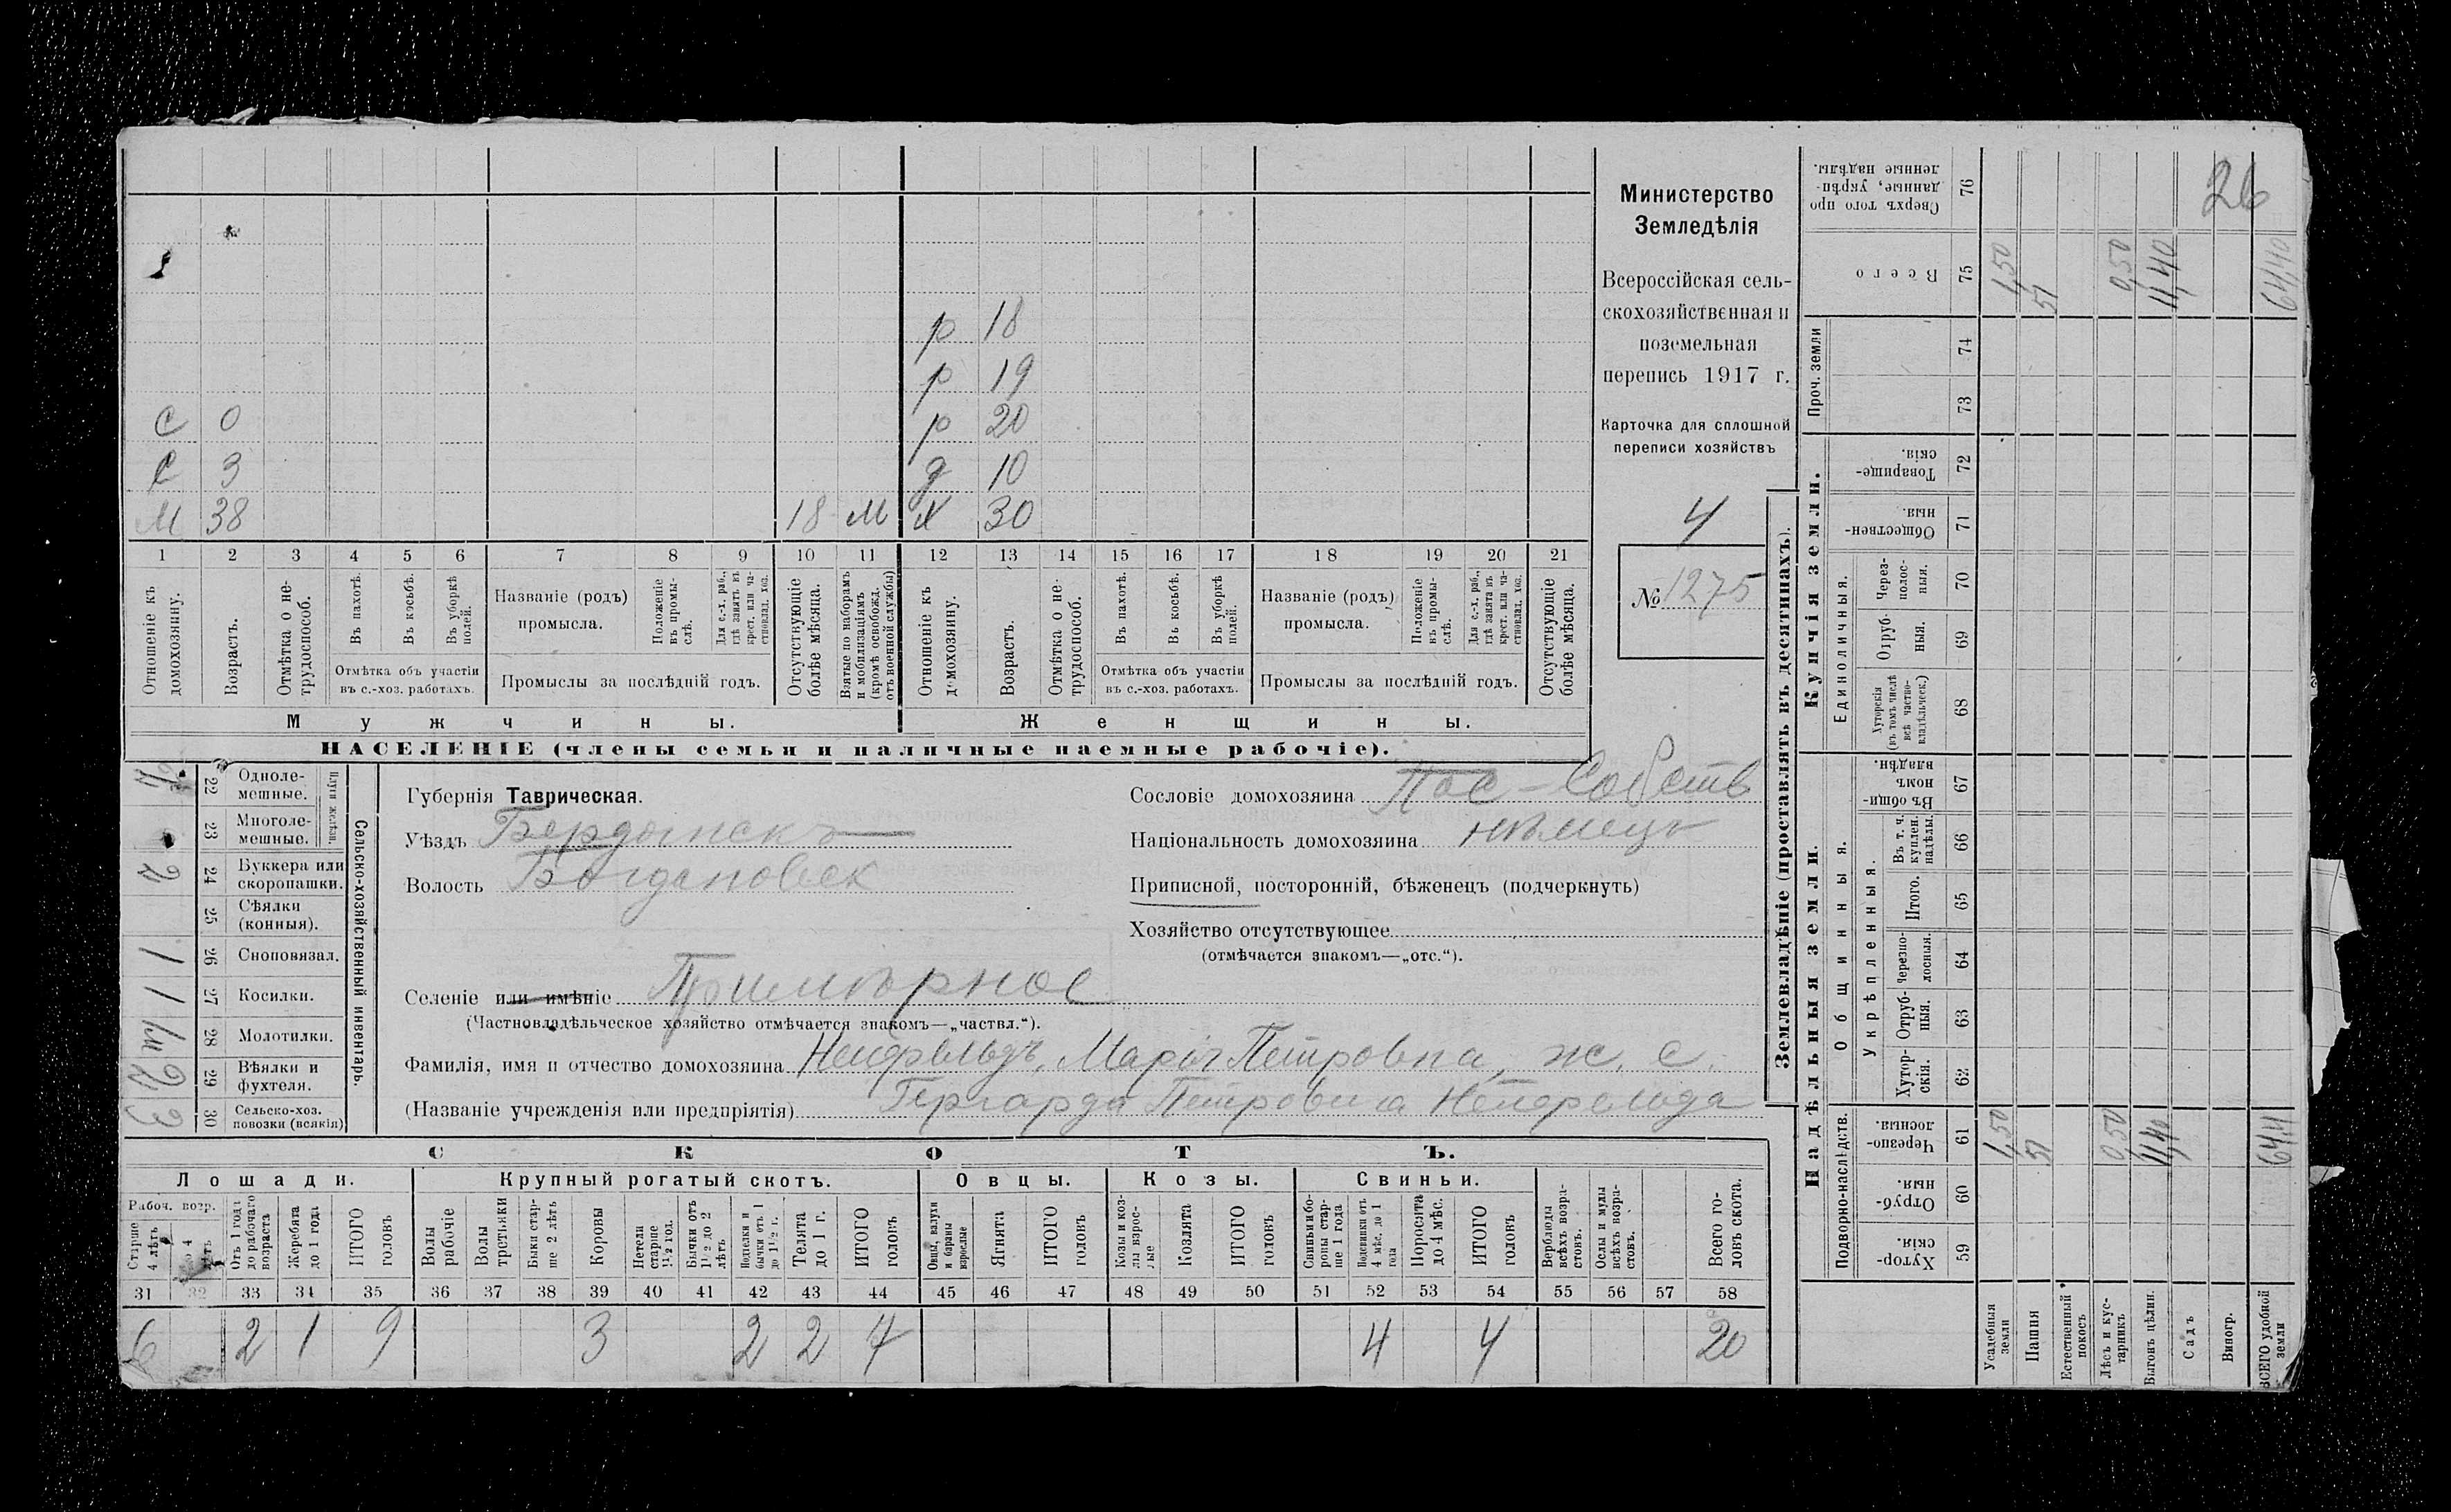 26
Министерство
Земледѣлія
Всероссійская сель-
скохозяйственная и
поземельная
перепись 1917 г.
Карточка для сплошной
переписи хозяйствъ
4
№ 1275
р 18
р 19
С 0 р 20
С 3 д 10
М 38 18 М Х 30
1 2 3 4 5 6 7 8 9 10 11 12 13 14 15 16 17 18 19 20 21
Отношеніе къ домохозяину.
Возрастъ.
Отмѣтка о не-трудоспособ.
Въ пахотѣ.
Въ косьбѣ.
Въ уборкѣ полей.
Отмѣтка объ участіи
въ с.-хоз. работахъ.
Названіе (родъ)
промысла.
Положеніе въ промы-слѣ.
Для с.-х. раб., гдѣ занятъ въ крест. или ча-стновлад. хоз.
Промыслы за послѣдній годъ.
Отсутствующіе болѣе мѣсяца.
Взятые по наборамъ и мобилизаціямъ (кромѣ освобожд. отъ военной службы)
Отношеніе къ домохозяину.
Возрастъ.
Отмѣтка о не-трудоспособ.
Въ пахотѣ.
Въ косьбѣ.
Въ уборкѣ полей.
Отмѣтка объ участіи
въ с.-хоз. работахъ.
Названіе (родъ)
промысла.
Положеніе въ промы-слѣ.
Для с.-х. раб., гдѣ занята въ крест. или ча-стновлад. хоз.
Промыслы за послѣдній годъ.
Отсутствующіе болѣе мѣсяца.
Мужчины.
Женщины.
НАСЕЛЕНІЕ (члены семьи и наличные наемные рабочіе).
Губернія Таврическая.
Уѣздъ Бердянскъ
Волость Богдановск
Сословіе домохозяина Пос-Собств
Національность домохозяина нѣмецъ
Приписной, посторонній, бѣженецъ (подчеркнуть)
Хозяйство отсутствующее
(отмѣчается знакомъ—„отс.“).
Селеніе или имѣніе Примѣрное
(Частновладѣльческое хозяйство отмѣчается знакомъ—„частвл.“).
Фамилія, имя и отчество домохозяина Нейфельдъ, Марія Петровна, ж. с.
(Названіе учрежденія или предпріятія) Гергарда Петровича Нейфельда
Сельско-хозяйственный инвентарь.
Плуги желѣзн.
22 Одноле-мешные.
23 Многоле-мешные.
24 Буккера или скоропашки. 2
25 Сѣялки (конныя).
26 Сноповязал. 1
27 Косилки. 1
28 Молотилки.
29 Вѣялки и фухтеля.
30 Сельско-хоз. повозки (всякія) 3
СКОТЪ.
Лошади.
Крупный рогатый скотъ.
Овцы.
Козы.
Свиньи.
Рабоч. возр.
Старше 4 лѣтъ
До 4 лѣтъ
Отъ 1 года до рабочаго возраста
Жеребята до 1 года
ИТОГО головъ
Волы рабочіе
Волы третьяки
Быки стар-ше 2 лѣтъ
Коровы
Нетели старше 1½ год.
Бычки отъ 1½ до 2 лѣтъ
Подтелки и бычки отъ 1 до 1½ г.
Телята до 1 г.
ИТОГО головъ
Овцы, валухи и бараны взрослые
Ягнята
ИТОГО головъ
Козы и коз-лы взрос-лые
Козлята
ИТОГО головъ
Свиньи и бо-ровы стар-ше 1 года
Подсвинки отъ 4 мѣс. до 1 года
Поросята до 4 мѣс.
ИТОГО головъ
Верблюды всѣхъ возра-стовъ.
Ослы и мулы всѣхъ возра-стовъ.
Всего го-ловъ скота.
31 32 33 34 35 36 37 38 39 40 41 42 43 44 45 46 47 48 49 50 51 52 53 54 55 56 57 58
6 2 1 9 3 2 2 7 4 4 20
Землевладѣніе (проставлять въ десятинахъ).
Надѣльныя земли.
Купчія земли.
Проч. земли
Подворно-наслѣдств.
Общинныя.
Укрѣпленныя.
Единоличныя.
Сверхъ того про данные, укрѣп-ленные надѣлы. 76
Всего 75 1,50 51 0,50 11,40 64,40
74
73
Товарище-скія. 72
Обществен-ныя. 71
Через-полос-ныя. 70
Отруб-ныя. 69
Хуторскія (въ томъ числѣ всѣ частно-владѣльческ.) 68
Въ общин-номъ владѣн. 67
Въ т. ч. куплен. надѣлы. 66
Итого. 65
Черезпо-лосныя. 64
Отруб-ныя. 63
Хутор-скія. 62
Черезпо-лосныя. 61 1,50 51 0,50 11,40
Отруб-ныя. 60
Хутор-скія. 59
Усадебныя земли
Пашня
Естественный покосъ
Лѣсъ и кус-тарникъ
Выгонъ цѣлин.
Садъ
Виногр.
ВСЕГО удобной земли